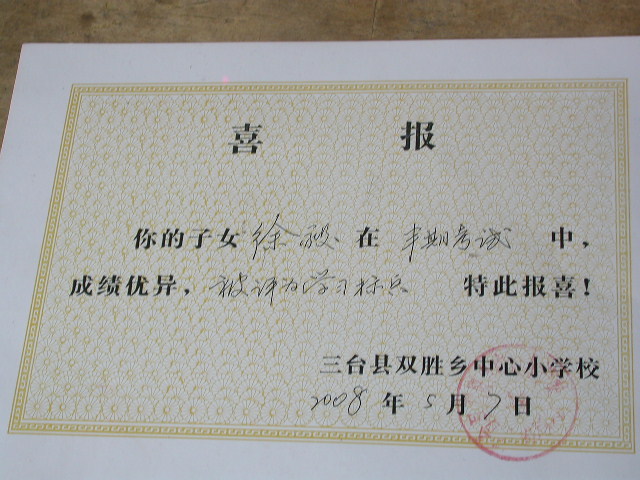 喜 报
你的子女徐毅在半期考试中，
成绩优异，被评为学习标兵 特此报喜！
三台县双胜乡中心小学校
2008年5月7日